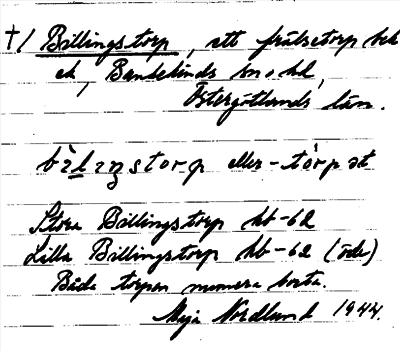 †/ Billingstorp, ett frälsetorp
Bankekinds sn o hd,
Östergötlands län.
bìlıŋstorp eller -tórpət
Stora Billingstorp hb-62
Lilla Billingstorp hb-62 (öde)
Båda torpen numera borta.
Maja Nordlund 1944.